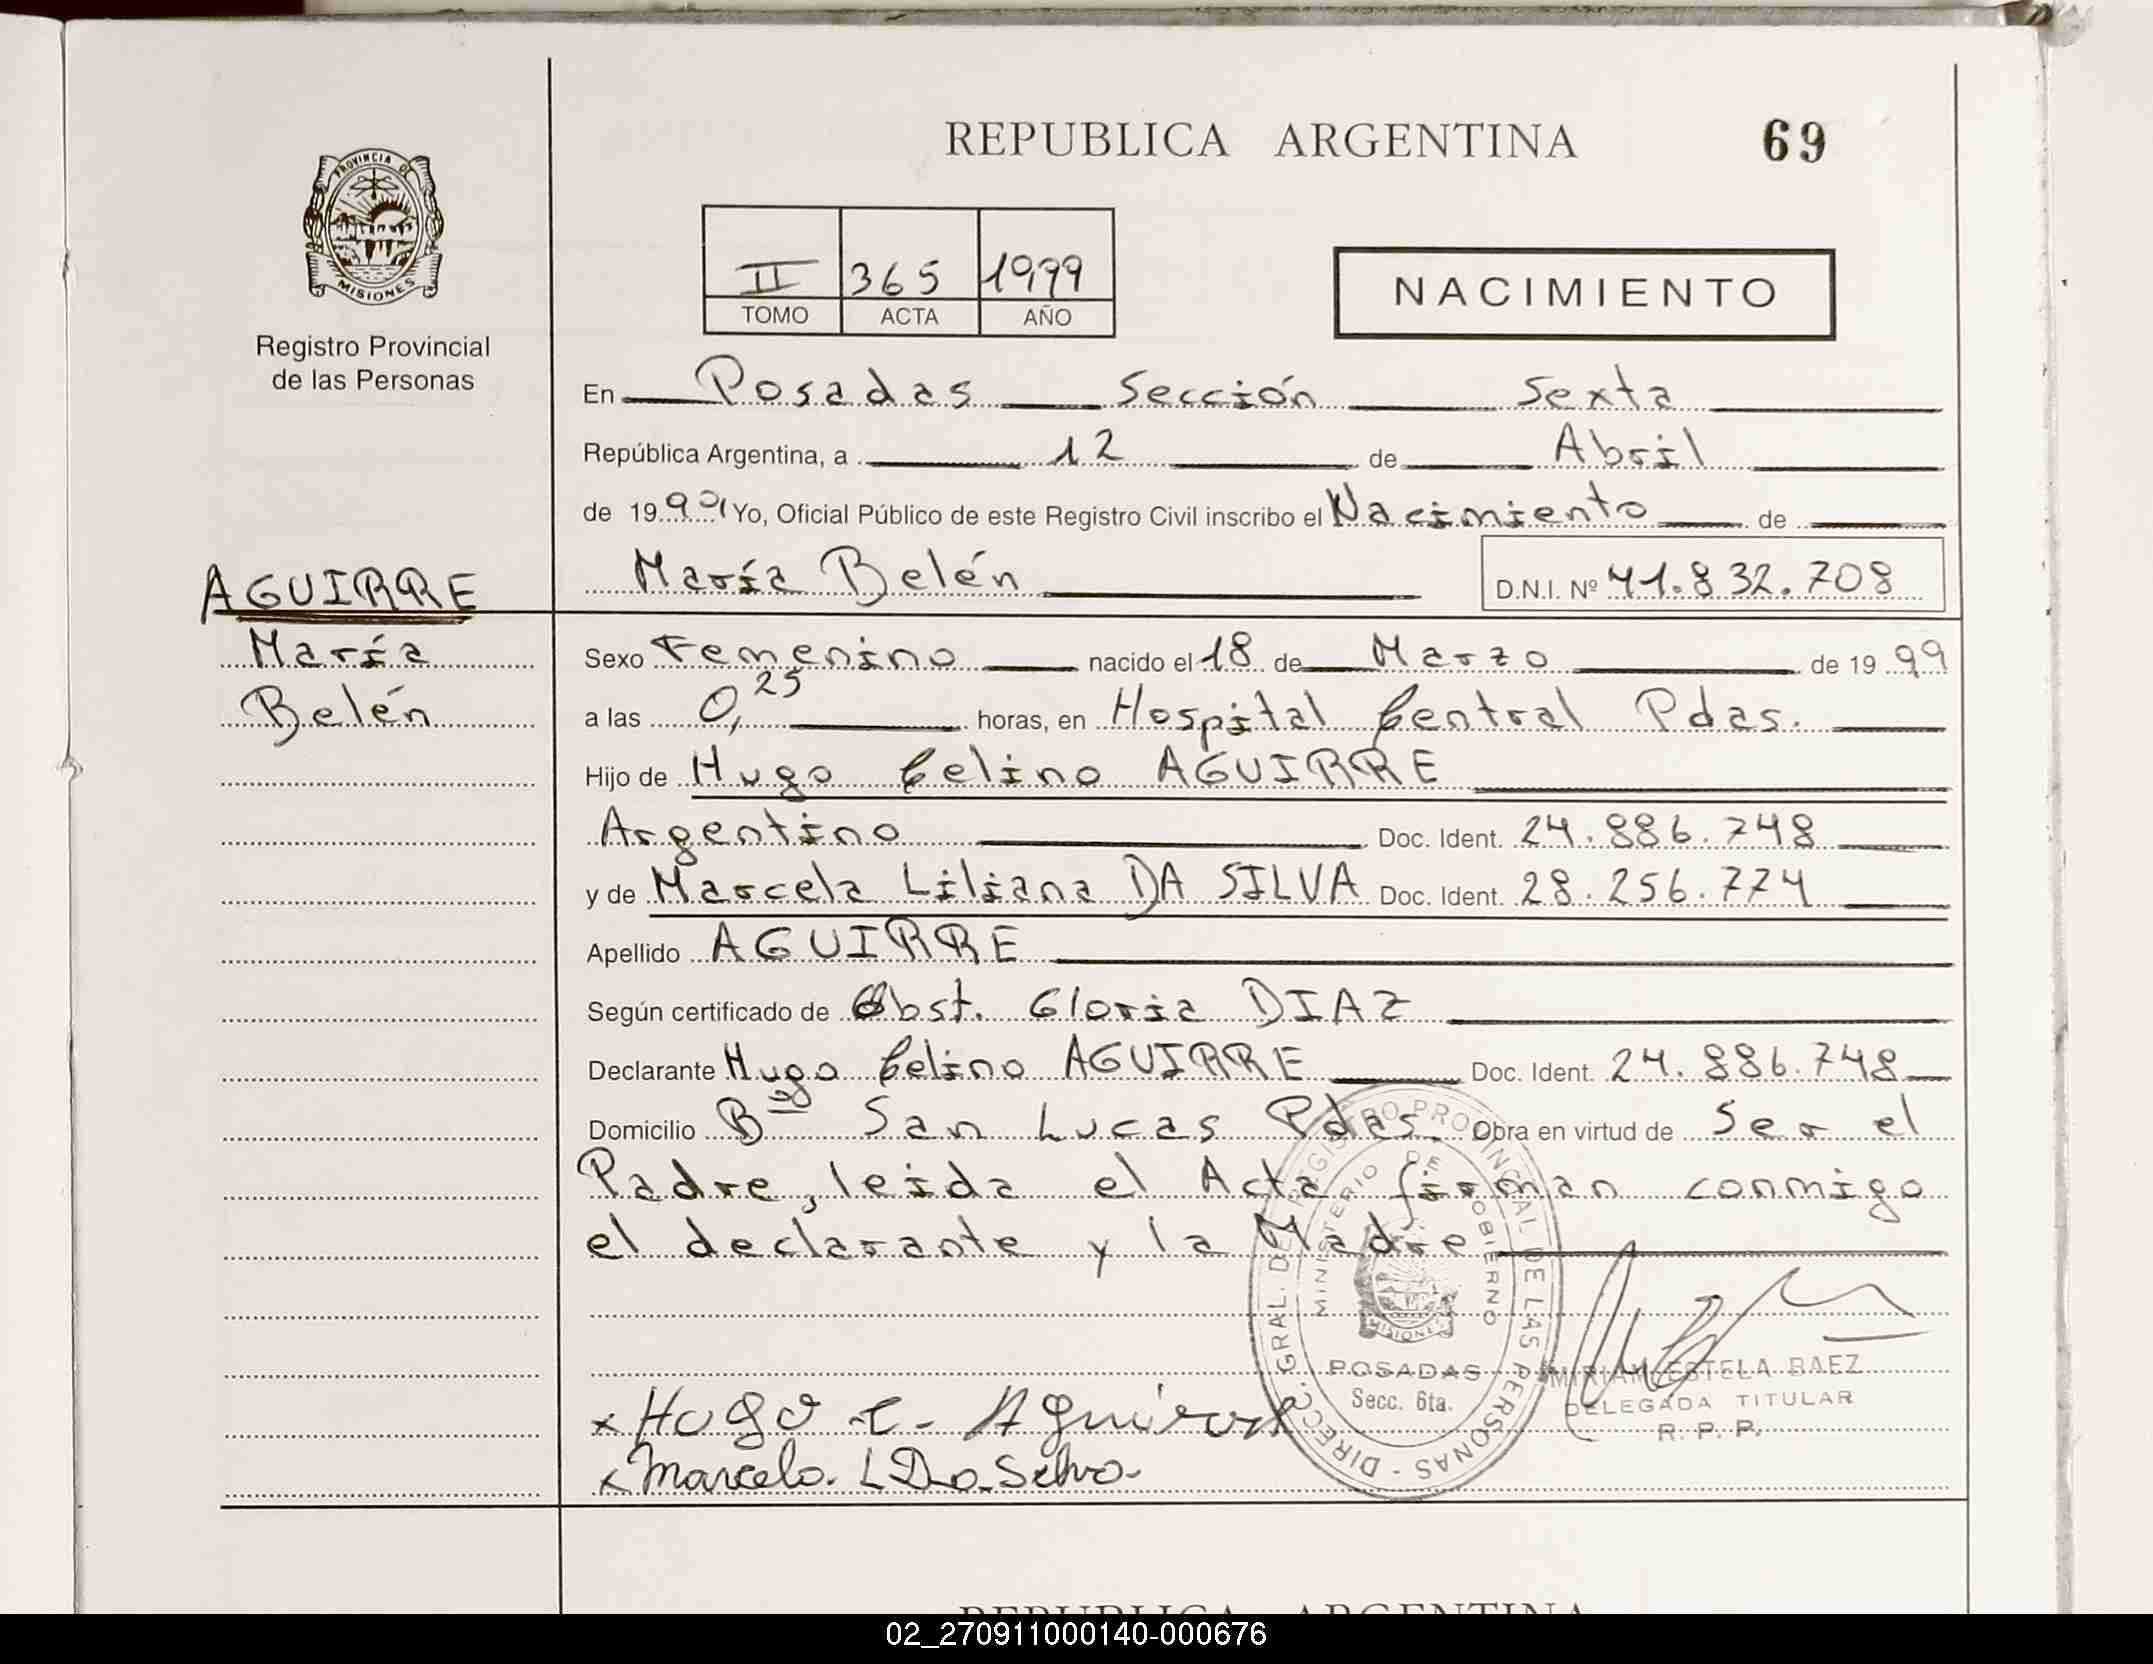 REPUBLICA ARGENTINA
69
PROVINCIA DE
MISIONES
Registro Provincial
de las Personas
II 365 1999
TOMO ACTA AÑO
NACIMIENTO
En Posadas Sección Sexta
República Argentina, a 12 de Abril
de 1999 Yo, Oficial Público de este Registro Civil inscribo el Nacimiento de
María Belén D.N.I. Nº 41.832.708
AGUIRRE
María
Belén
Sexo Femenino nacido el 18 de Marzo de 1999
a las 0,25 horas, en Hospital Central Pdas.
Hijo de Hugo Celino AGUIRRE
Argentino Doc. Ident. 24.886.748
y de Marcela Liliana DA SILVA Doc. Ident. 28.256.774
Apellido AGUIRRE
Según certificado de Obst. Gloria DIAZ
Declarante Hugo Celino AGUIRRE Doc. Ident. 24.886.748
Domicilio Bº San Lucas Pdas. Obra en virtud de Ser el
Padre, leída el Acta firman conmigo
el declarante y la Madre
DIRECC. GRAL. DEL REGISTRO PROVINCIAL DE LAS PERSONAS -
MINISTERIO DE GOBIERNO
MISIONES
POSADAS
Secc. 6ta.
MIRIAM ESTELA BAEZ
DELEGADA TITULAR
R. P. P.
x Hugo C- Aguirre
x Marcela. L Da Silva-
REPUBLICA ARGENTINA
02_270911000140-000676